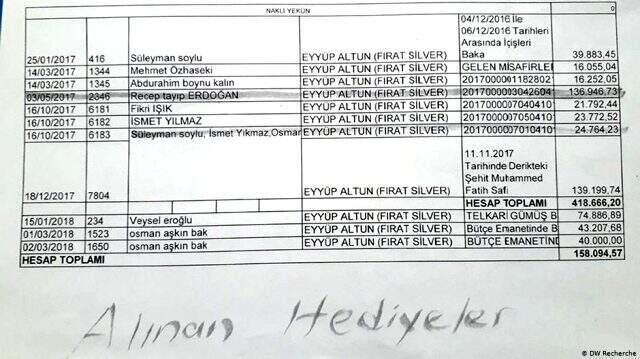 NAKLİ YEKÜN 0
04/12/2016 İle
06/12/2016 Tarihleri
Arasında İçişleri
25/01/2017 416 Süleyman soylu EYYÜP ALTUN (FIRAT SİLVER) Baka 39.883,45
14/03/2017 1344 Mehmet Özhaseki EYYÜP ALTUN (FIRAT SİLVER) GELEN MİSAFİRLE 16.055,04
14/03/2017 1345 Abdurahim boynu kalın EYYÜP ALTUN (FIRAT SİLVER) 2017000001182802 16.252,05
03/05/2017 2346 Recep tayıp ERDOĞAN EYYÜP ALTUN (FIRAT SİLVER) 20170000003042604 136.946,73
16/10/2017 6181 Fikri IŞIK EYYÜP ALTUN (FIRAT SİLVER) 20170000007040410 21.792,44
16/10/2017 6182 İSMET YILMAZ EYYÜP ALTUN (FIRAT SİLVER) 20170000007050410 23.772,52
16/10/2017 6183 Süleyman soylu, İsmet Yıkmaz,Osmar EYYÜP ALTUN (FIRAT SİLVER) 20170000007010410 24.764,23
11.11.2017
Tarihinde Derikteki
Şehit Muhammed
18/12/2017 7804 EYYÜP ALTUN (FIRAT SİLVER) Fatih Safi 139.199,74
HESAP TOPLAMI 418.666,20
15/01/2018 234 Veysel eroğlu EYYÜP ALTUN (FIRAT SİLVER) TELKARİ GÜMÜŞ B 74.886,89
01/03/2018 1523 osman aşkın bak EYYÜP ALTUN (FIRAT SİLVER) Bütçe Emanetinde B 43.207,68
02/03/2018 1650 osman aşkın bak EYYÜP ALTUN (FIRAT SİLVER) BÜTÇE EMANETİND 40.000,00
HESAP TOPLAMI 158.094,57
Alınan Hediyeler
© DW Recherche